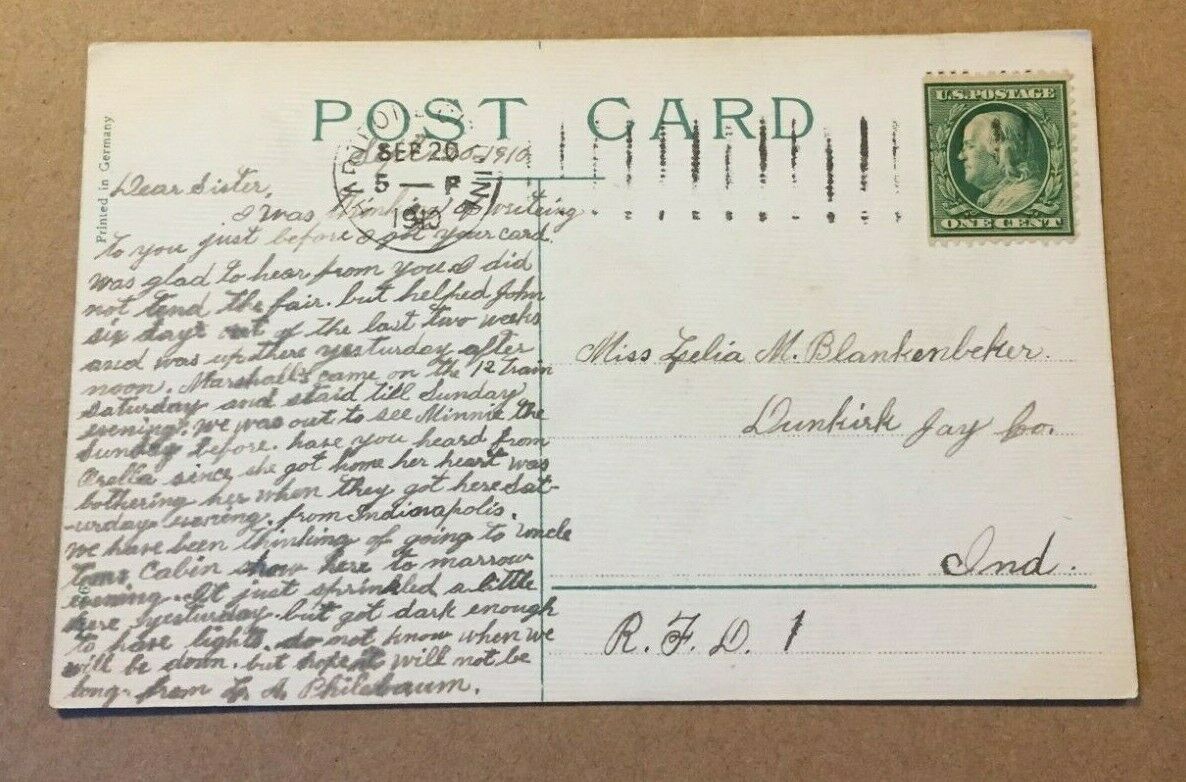 POST CARD
Printed in Germany
U.S. POSTAGE
ONE CENT
SEP 20
1910
IND
1910
Dear Sister,
I was thinking of writeing
to you just before I got your card.
was glad to hear from you I did
not tend the fair. but helped John
six days out of the last two weeks
and was up there yesterday after
noon. Marshall's came on the 12 train
Saturday and staid till Sunday
evening. we was out to see Minnie the
Sunday before. have you heard from
Orella since she got home her heart was
bothering her when they got here Sat-
-urday evening. from Indianapolis.
we have been thinking of going to Uncle
toms Cabin show here to marrow
evening. It just sprinkled a little
here yesterday. but got dark enough
to have lights. do not know when we
will be down. but hope it will not be
long. from L. A. Philebaum.
Miss Zelia M. Blankenbeker.
Dunkirk Jay Co.
Ind.
R. F. D. 1